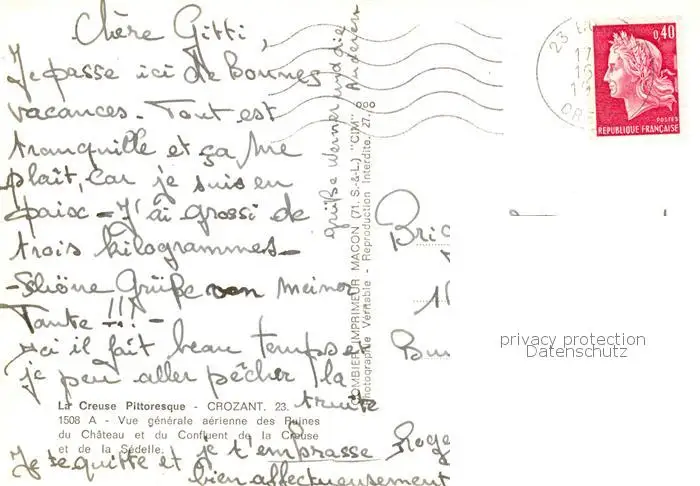 Chère Gitti,
Je passe ici de Bonnes
vacances - Tout est
tranquille et ça me
plaît, car je suis en
paix - J'ai grossi de
trois kilogrammes -
- Schöne Grüße von meiner
Tante !!! -
Ici il fait beau temps et
je peu aller pêcher la
truite
Je te quitte et je t'emprasse
bien affectueusement
Roge
grüße Werner und die
Anderen
La Creuse Pittoresque - CROZANT. 23.
1508 A - Vue générale aérienne des Ruines
du Château et du Confluent de la Creuse
et de la Sédelle.
COMBIER IMPRIMEUR MACON (71. S.-&-L.) "CIM"
Photographie Véritable - Reproduction Interdite. 27.
23
17
0,40
POSTES
REPUBLIQUE FRANÇAISE
privacy protection
Datenschutz